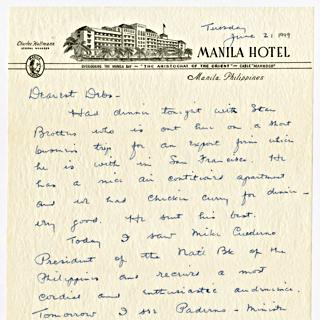 Tuesday
June 21 1949
Charles Hollmann
GENERAL MANAGER
MANILA HOTEL
OVERLOOKING THE MANILA BAY — "THE ARISTOCRAT OF THE ORIENT" — CABLE "MANHOCO"
Manila Philippines
Dearest Debs -
Had dinner tonight with Stan
Brothers who is out here on a short
business trip for an export firm which
he is with in San Francisco. He
has a nice air conditioned apartment
and we had chicken curry for dinner -
very good. He sent his best.
Today I saw Mike Cuaderno
President of the Nat'l Bk of the
Philippines and received a most
cordial and enthusiastic audience.
Tomorrow I see Paderno - Minister